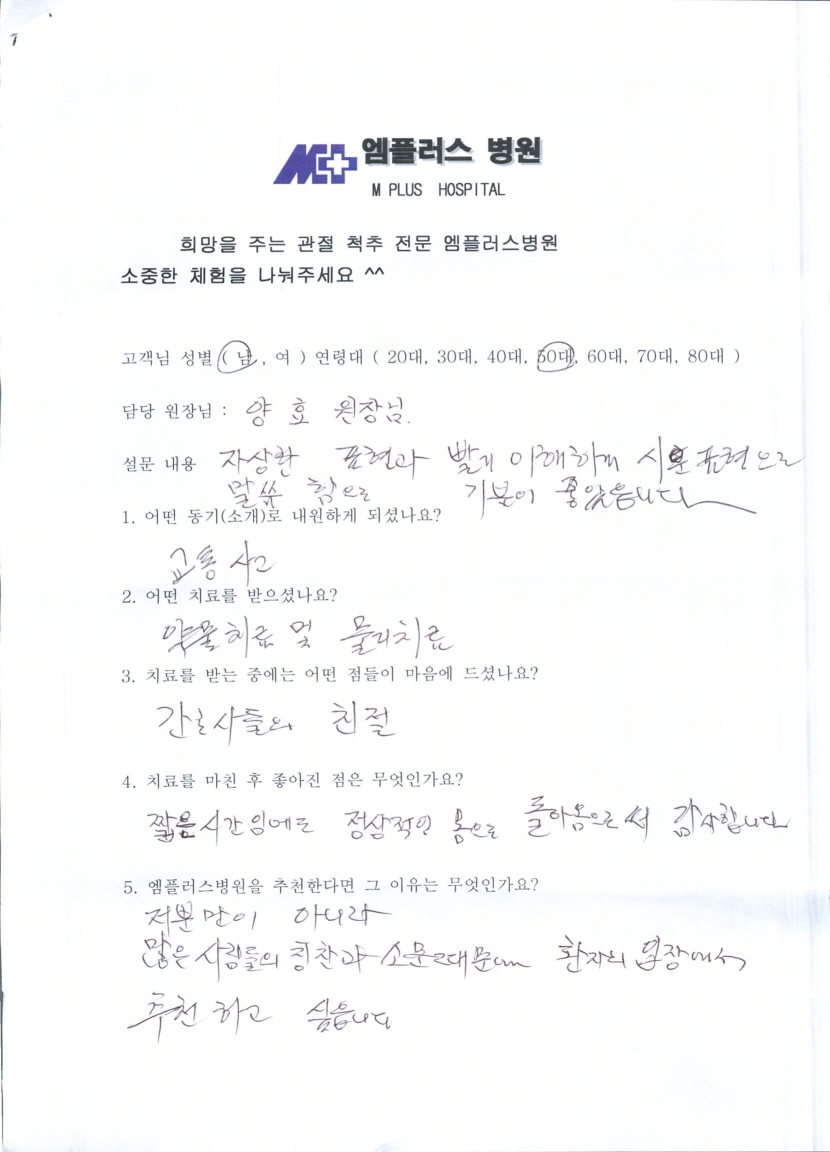 엠플러스 병원
M PLUS HOSPITAL
희망을 주는 관절 척추 전문 엠플러스병원
소중한 체험을 나눠주세요 ^^
고객님 성별 ( 남 , 여 ) 연령대 ( 20대, 30대, 40대, 50대, 60대, 70대, 80대 )
담당 원장님 : 양 효 원장님.
설문 내용 자상한 표현과 빨리 이해하게 표현으로
말씀 힘으로 기분이 좋았습니다
1. 어떤 동기(소개)로 내원하게 되셨나요?
교통 사고
2. 어떤 치료를 받으셨나요?
약물치료 및 물리치료
3. 치료를 받는 중에는 어떤 점들이 마음에 드셨나요?
간호사들의 친절
4. 치료를 마친 후 좋아진 점은 무엇인가요?
짧은 시간임에도 정상적인 몸으로 돌아옴으로써 감사합니다
5. 엠플러스병원을 추천한다면 그 이유는 무엇인가요?
저뿐만이 아니라
많은 사람들의 칭찬과 소문 때문에 환자의 입장에서
추천하고 싶습니다